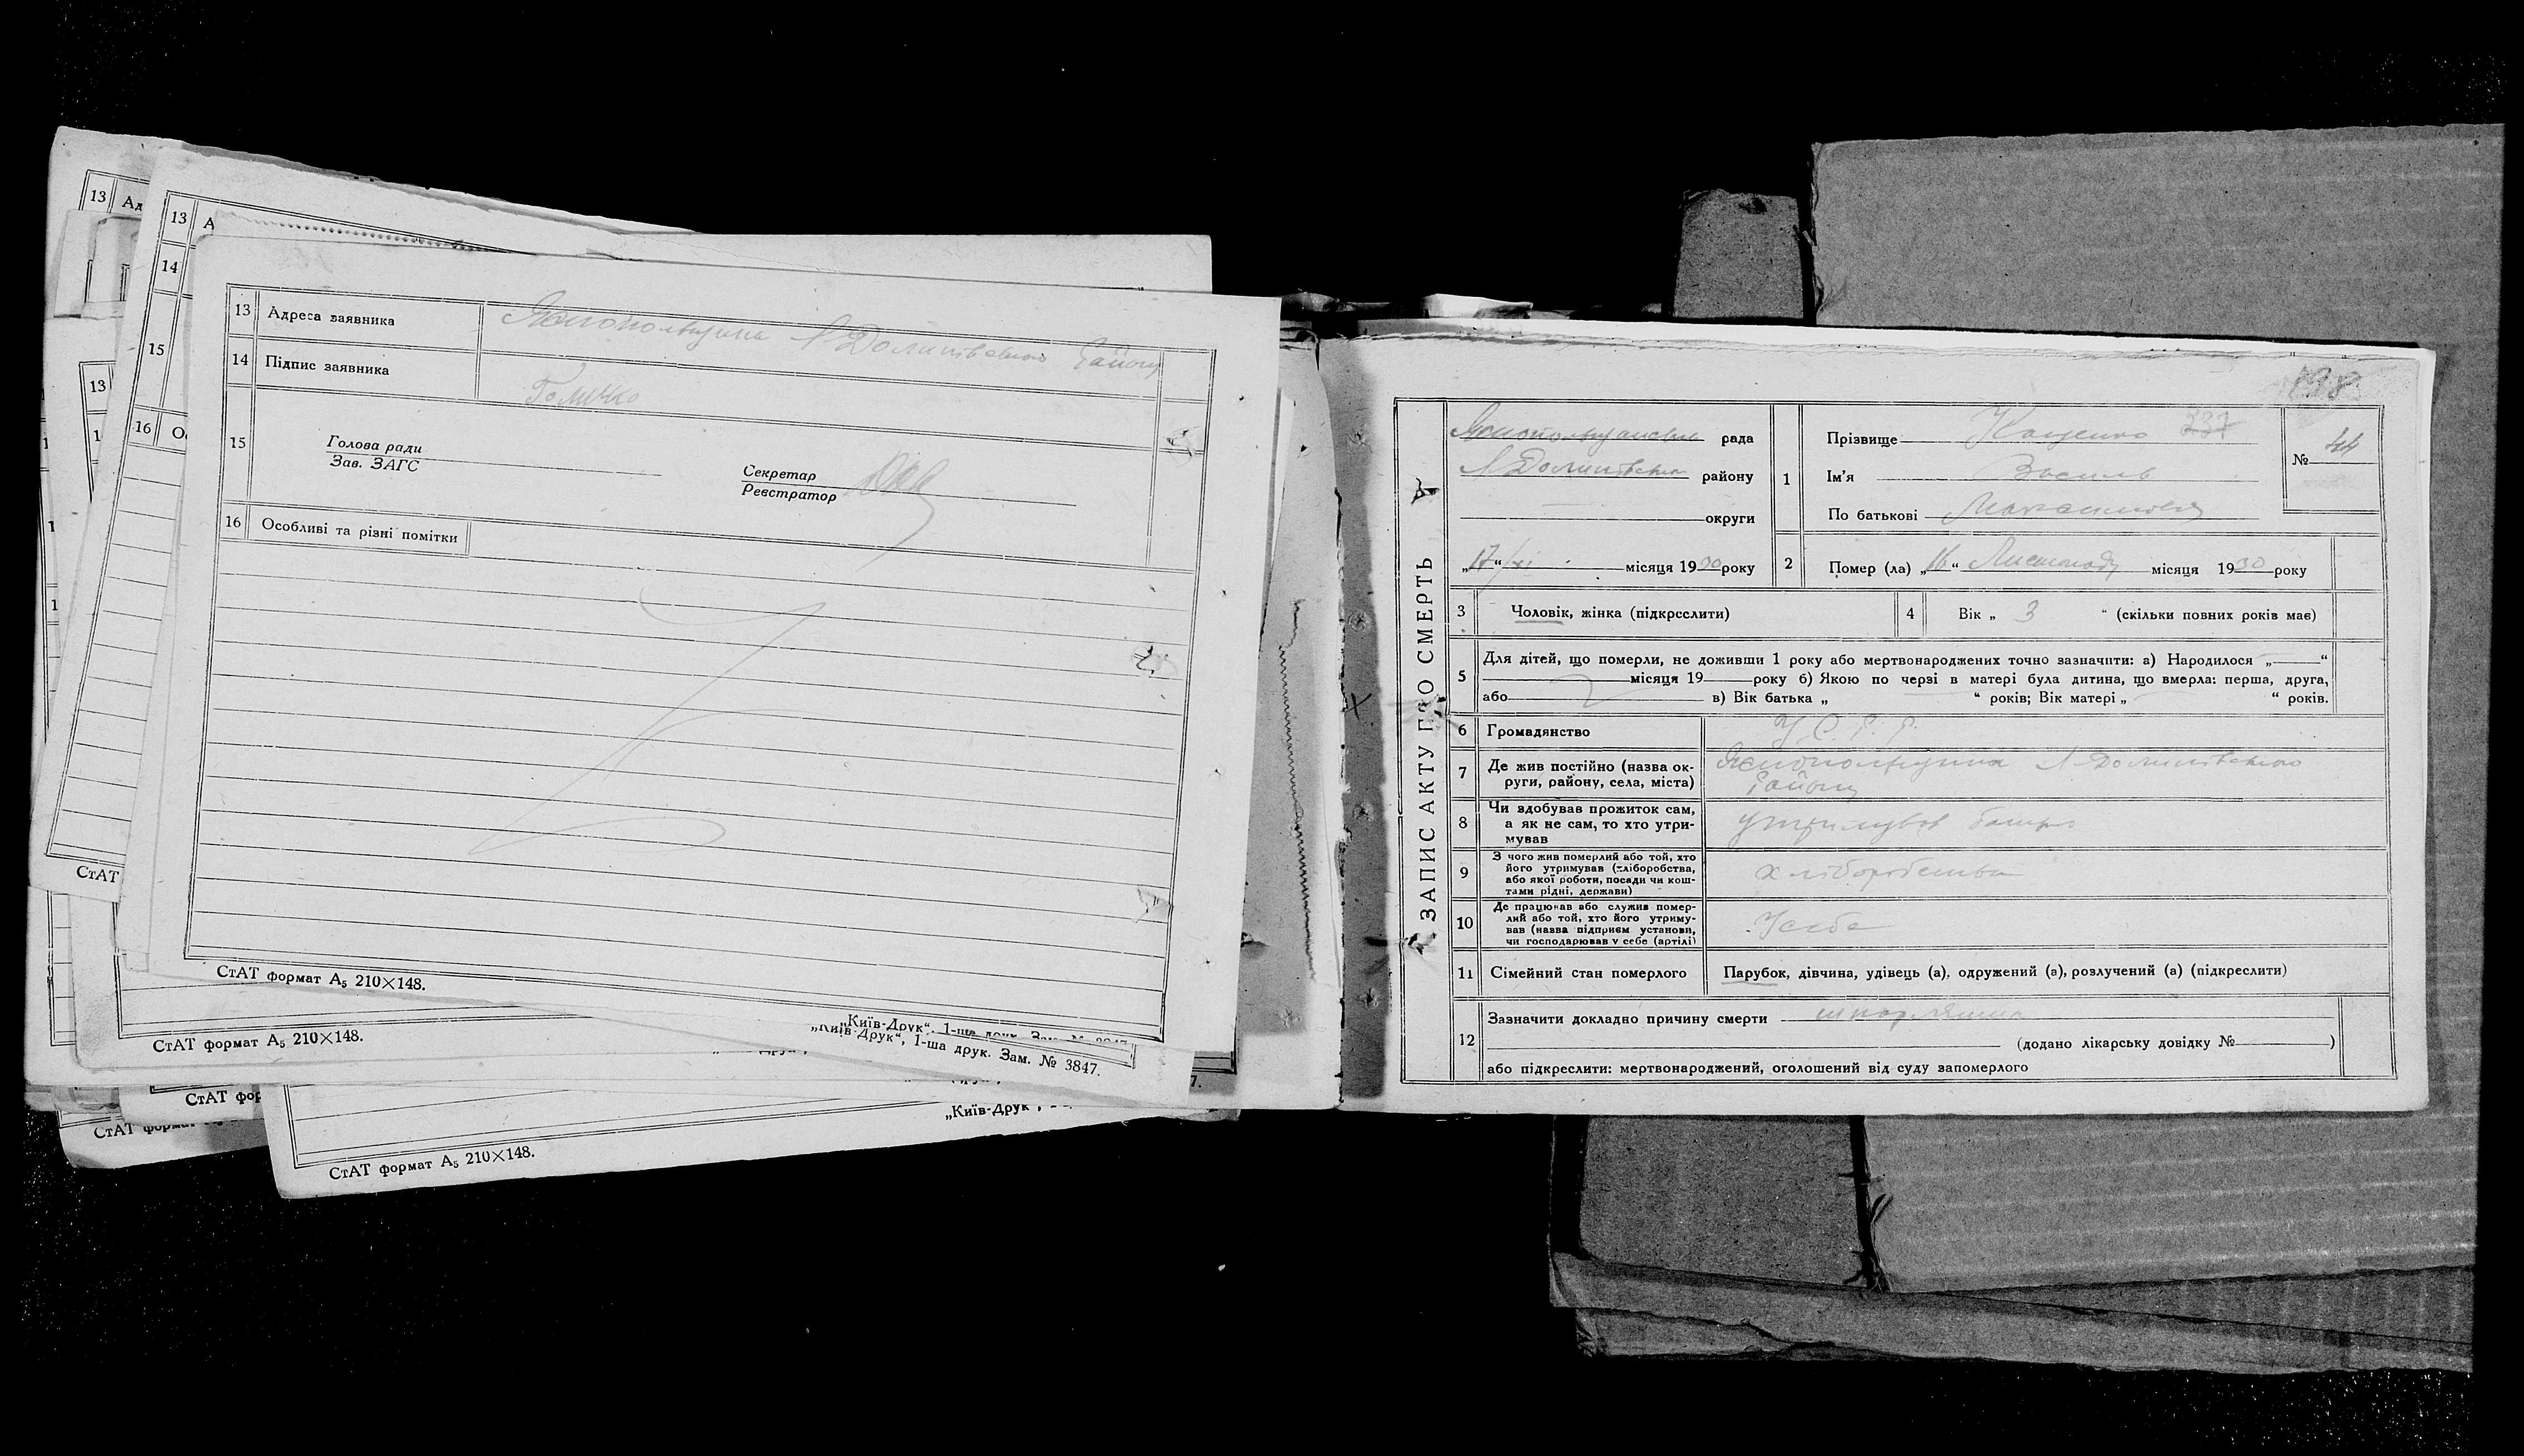 13 Ад
13 А
14
15
16 О
13
13 Адреса заявника Яснопольщина Л Долинівського Району
14 Підпис заявника
15 Голова ради
Зав. ЗАГС
Секретар
Реєстратор
16 Особливі та різні помітки
СтАТ формат А5 210×148.
СтАТ
„Київ-Друк“, 1-ша друк. Зам. № 3847.
СтАТ формат А5 210×148.
„Київ-Друк“, 1-ша друк. Зам. № 3847.
СтАТ фор
7.
СтАТ
„Київ-Друк“,
СтАТ формат А5 210×148.
138
ЗАПИС АКТУ ПРО СМЕРТЬ
рада
Л Долинівського району
округи
„17“ /XI місяця 1930 року
1 Прізвище 237
Ім'я Василь
По батькові Максимович
№ 44
2 Помер (ла) „16“ Листопаду місяця 1930 року
3 Чоловік, жінка (підкреслити)
4 Вік „ 3 “ (скільки повних років має)
5 Для дітей, що померли, не доживши 1 року або мертвонароджених точно зазначити: а) Народилося „ “
місяця 19 року б) Якою по черзі в матері була дитина, що вмерла: перша, друга,
або в) Вік батька „ “ років; Вік матері „ “ років.
6 Громадянство У.С.Р.Р.
7 Де жив постійно (назва ок-
руги, району, села, міста)
Яснопольщина Л-Долинівського
Району
8 Чи здобував прожиток сам,
а як не сам, то хто утри-
мував
утримував батько
9 З чого жив померлий або той, хто
його утримував (хліборобства,
або якої роботи, посади чи кош-
тами рідні, держави)
хліборобства
10 Де працював або служив помер-
лий або той, хто його утриму-
вав (назва підприєм установи,
чи господарював у себе (артілі)
У себе
11 Сімейний стан померлого
Парубок, дівчина, удівець (а), одружений (а), розлучений (а) (підкреслити)
12 Зазначити докладно причину смерти
(додано лікарську довідку № )
або підкреслити: мертвонароджений, оголошений від суду запомерлого